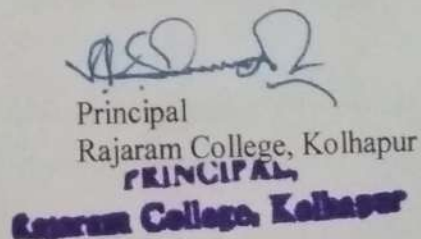 Principal
Rajaram College, Kolhapur
PRINCIPAL,
Rajaram College, Kolhapur